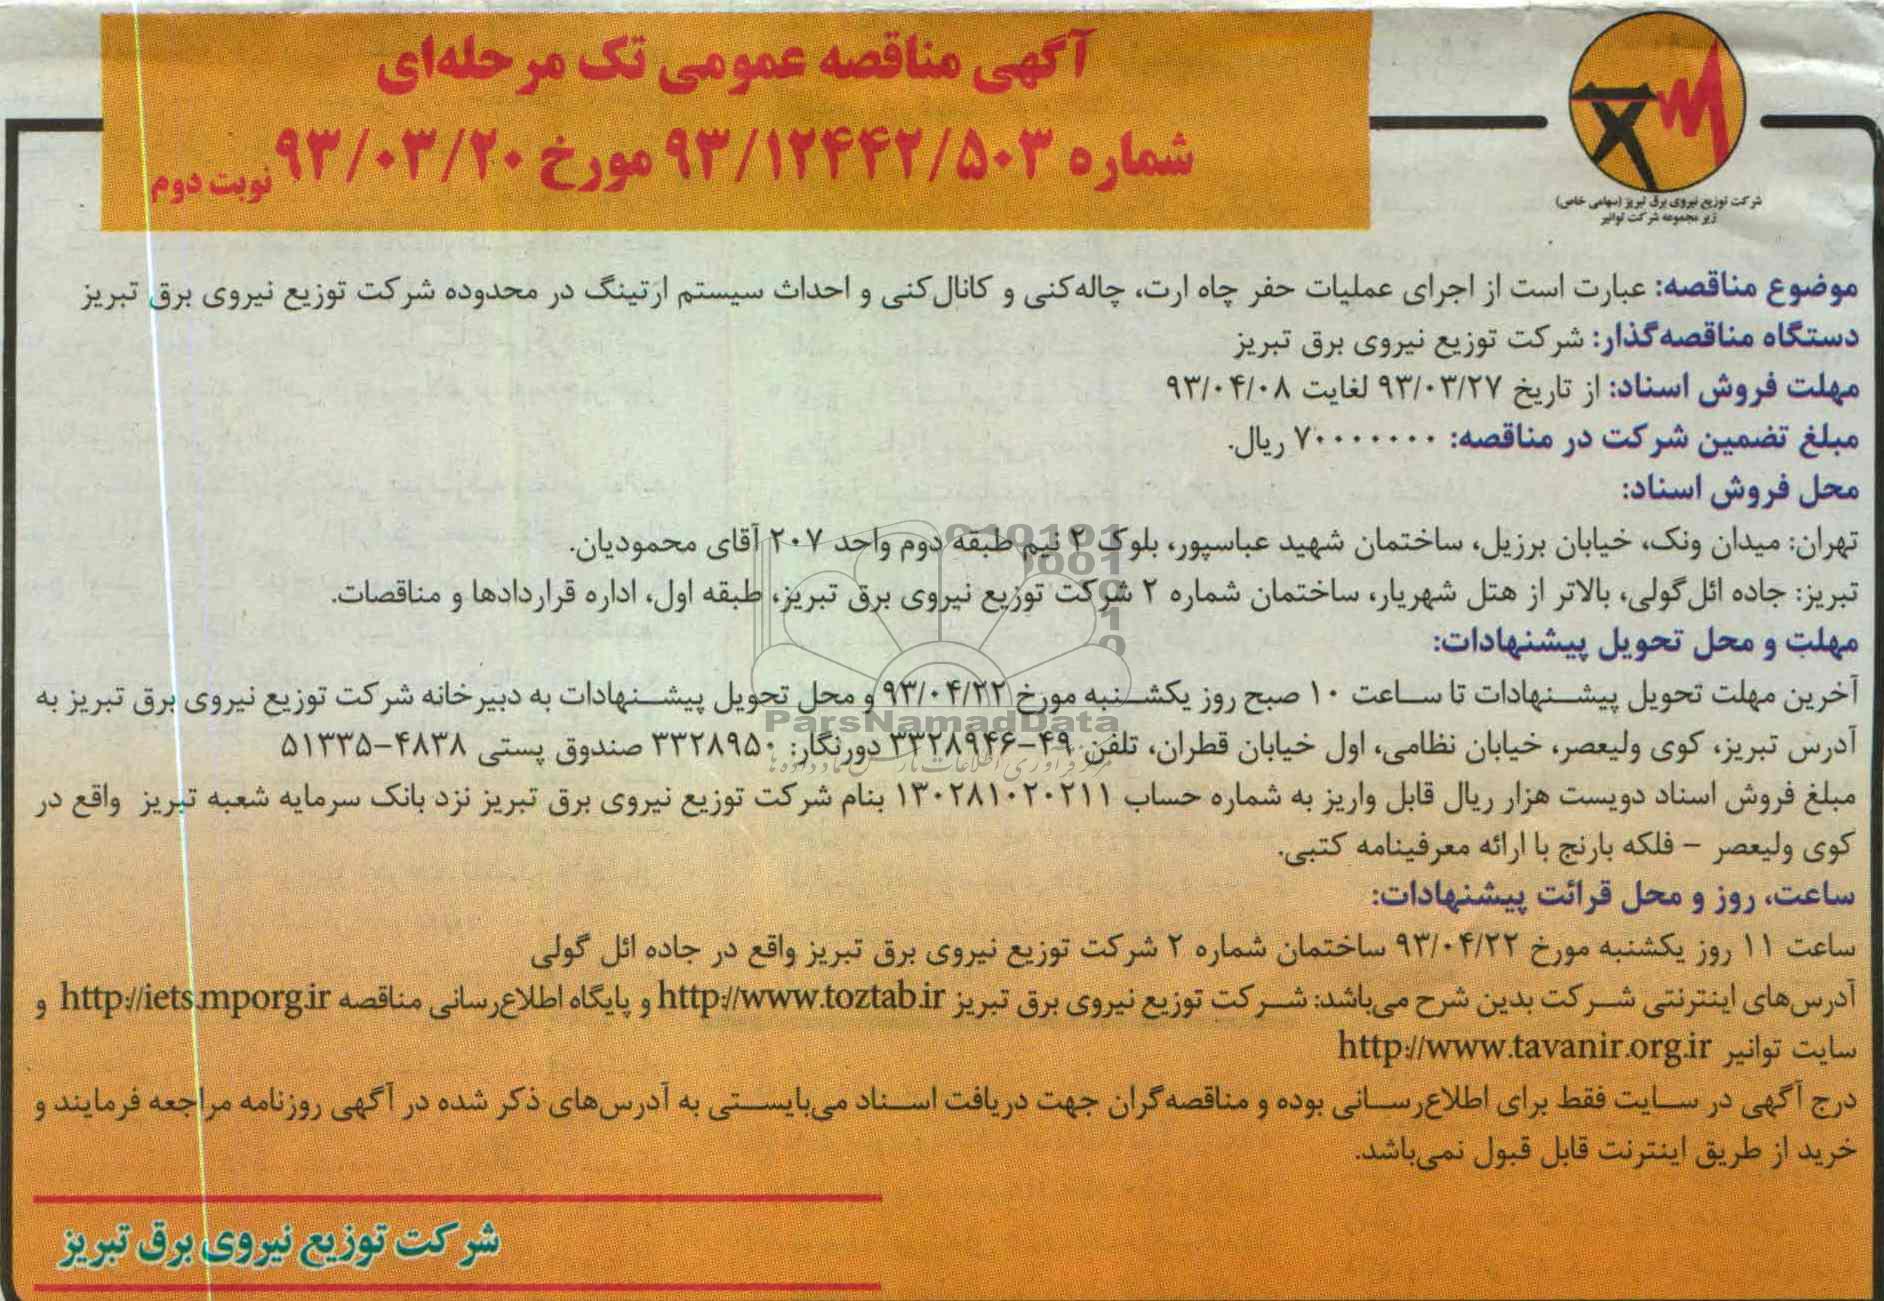 آگهی مناقصه عمومی تک مرحله‌ای
شماره ۹۳/۱۲۴۴۲/۵۰۳ مورخ ۹۳/۰۳/۲۰ نوبت دوم
شرکت توزیع نیروی برق تبریز (سهامی خاص)
زیر مجموعه شرکت توانیر
موضوع مناقصه: عبارت است از اجرای عملیات حفر چاه ارت، چاله‌کنی و کانال‌کنی و احداث سیستم ارتینگ در محدوده شرکت توزیع نیروی برق تبریز
دستگاه مناقصه‌گذار: شرکت توزیع نیروی برق تبریز
مهلت فروش اسناد: از تاریخ ۹۳/۰۳/۲۷ لغایت ۹۳/۰۴/۰۸
مبلغ تضمین شرکت در مناقصه: ۷۰۰۰۰۰۰۰ ریال.
محل فروش اسناد:
تهران: میدان ونک، خیابان برزیل، ساختمان شهید عباسپور، بلوک ۲ نیم طبقه دوم واحد ۲۰۷ آقای محمودیان.
تبریز: جاده ائل‌گولی، بالاتر از هتل شهریار، ساختمان شماره ۲ شرکت توزیع نیروی برق تبریز، طبقه اول، اداره قراردادها و مناقصات.
مهلت و محل تحویل پیشنهادات:
آخرین مهلت تحویل پیشنهادات تا ساعت ۱۰ صبح روز یکشنبه مورخ ۹۳/۰۴/۲۲ و محل تحویل پیشنهادات به دبیرخانه شرکت توزیع نیروی برق تبریز به
آدرس تبریز، کوی ولیعصر، خیابان نظامی، اول خیابان قطران، تلفن ۴۹-۳۳۲۸۹۴۶ دورنگار: ۳۳۲۸۹۵۰ صندوق پستی ۴۸۳۸-۵۱۳۳۵
مبلغ فروش اسناد دویست هزار ریال قابل واریز به شماره حساب ۱۳۰۲۸۱۰۲۰۲۱۱ بنام شرکت توزیع نیروی برق تبریز نزد بانک سرمایه شعبه تبریز واقع در
کوی ولیعصر - فلکه بارنج با ارائه معرفینامه کتبی.
ساعت، روز و محل قرائت پیشنهادات:
ساعت ۱۱ روز یکشنبه مورخ ۹۳/۰۴/۲۲ ساختمان شماره ۲ شرکت توزیع نیروی برق تبریز واقع در جاده ائل گولی
آدرس‌های اینترنتی شرکت بدین شرح می‌باشد: شرکت توزیع نیروی برق تبریز http://www.toztab.ir و پایگاه اطلاع‌رسانی مناقصه http://iets.mporg.ir و
سایت توانیر http://www.tavanir.org.ir
درج آگهی در سایت فقط برای اطلاع‌رسانی بوده و مناقصه‌گران جهت دریافت اسناد می‌بایستی به آدرس‌های ذکر شده در آگهی روزنامه مراجعه فرمایند و
خرید از طریق اینترنت قابل قبول نمی‌باشد.
شرکت توزیع نیروی برق تبریز
ParsNamadData